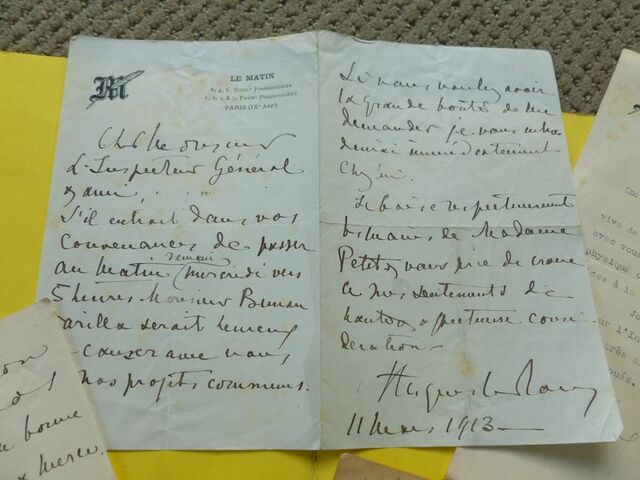 LE MATIN
2, 4, 6, Boulᵈ Poissonnière
1, 3, 5 & 7, Faubᵍ Poissonnière
PARIS (IXᵉ Arrᵗ)
Cher Monsieur
L'Inspecteur Général
& ami,
S'il entrait dans vos
convenances de passer
demain
au Matin (mercredi vers
5 heures Monsieur Bunau
Varilla serait heureux
causer avec vous
nos projets communs.
Si vous voulez avoir
la grande bonté de me
demander je vous
immédiatement
chez
Je baise respectueusement
les mains de Madame
Petit & vous prie de croire
à mes sentiments de
haute & affectueuse consi
dération.
Hugues Le Roux
11 Mars 1913
on
bonne
merci.
vive de
avec vous
physique
ces à la
Jo
ur l'In
ords d
qués.